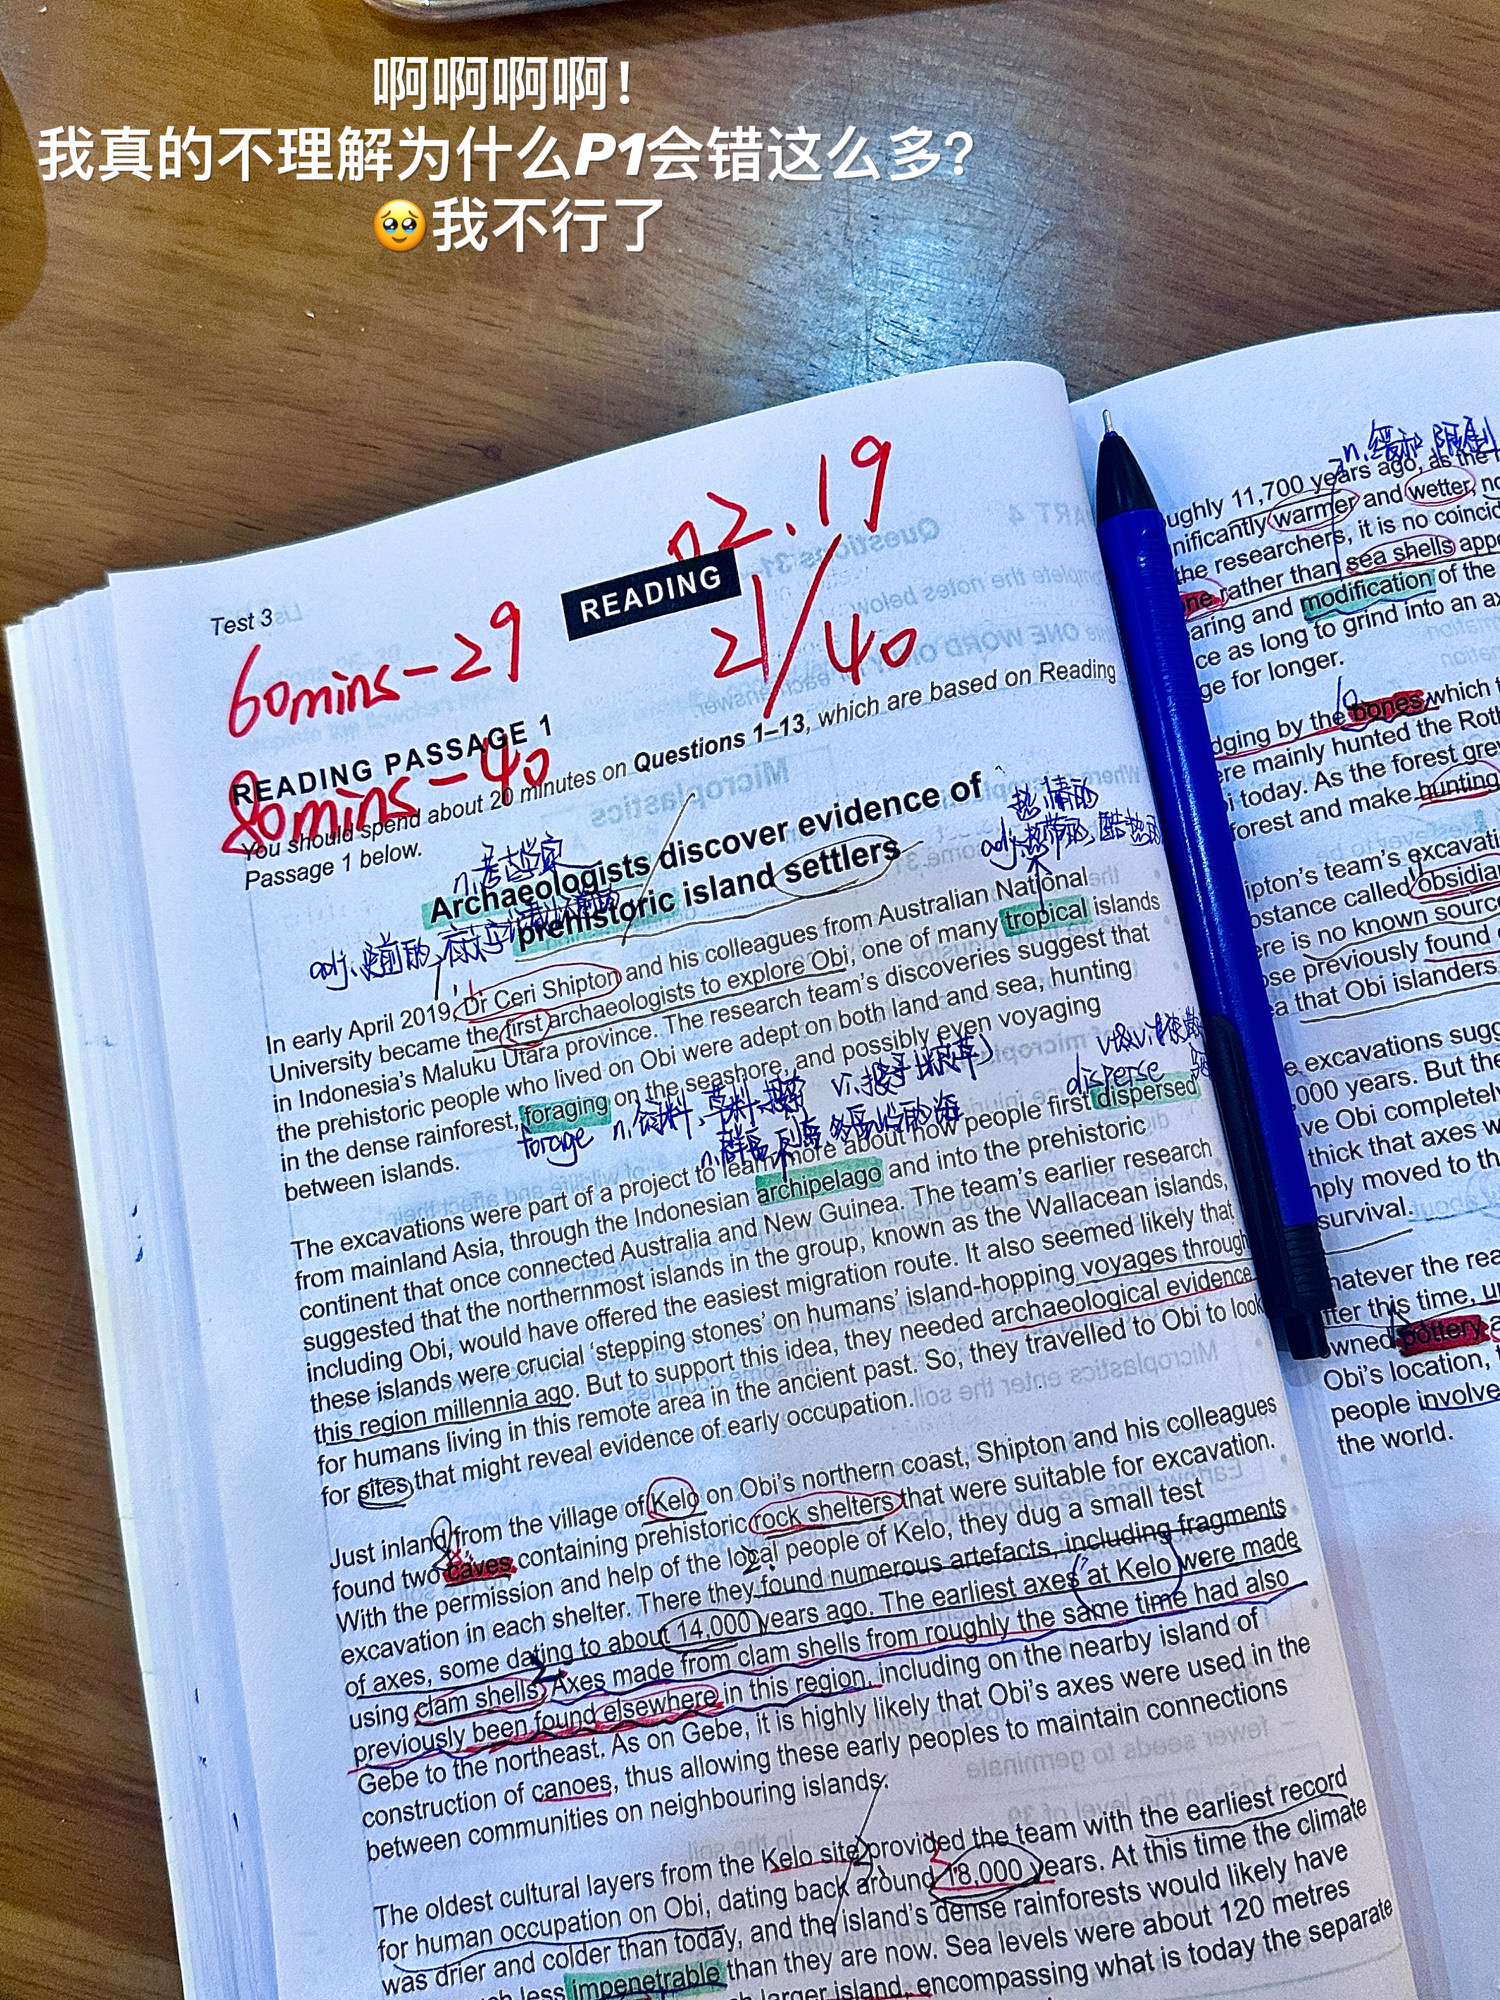 啊啊啊啊！
我真的不理解为什么P1会错这么多？
🥹我不行了
02.19
Test 3
READING
21/40
60mins-29
READING PASSAGE 1
80mins-40
You should spend about 20 minutes on Questions 1–13, which are based on Reading
Passage 1 below.
n.考古学家
热情的
adj.热带的,酷热的
Archaeologists discover evidence of
prehistoric island settlers
In early April 2019, Dr Ceri Shipton and his colleagues from Australian National
University became the first archaeologists to explore Obi, one of many tropical islands
in Indonesia's Maluku Utara province. The research team's discoveries suggest that
the prehistoric people who lived on Obi were adept on both land and sea, hunting
in the dense rainforest, foraging on the seashore, and possibly even voyaging
between islands.
forage
disperse
The excavations were part of a project to learn more about how people first dispersed
from mainland Asia, through the Indonesian archipelago and into the prehistoric
continent that once connected Australia and New Guinea. The team's earlier research
suggested that the northernmost islands in the group, known as the Wallacean islands,
including Obi, would have offered the easiest migration route. It also seemed likely that
these islands were crucial 'stepping stones' on humans' island-hopping voyages through
this region millennia ago. But to support this idea, they needed archaeological evidence
for humans living in this remote area in the ancient past. So, they travelled to Obi to look
for sites that might reveal evidence of early occupation.
Just inland from the village of Kelo on Obi's northern coast, Shipton and his colleagues
found two caves containing prehistoric rock shelters that were suitable for excavation.
With the permission and help of the local people of Kelo, they dug a small test
excavation in each shelter. There they found numerous artefacts, including fragments
of axes, some dating to about 14,000 years ago. The earliest axes at Kelo were made
using clam shells. Axes made from clam shells from roughly the same time had also
previously been found elsewhere in this region, including on the nearby island of
Gebe to the northeast. As on Gebe, it is highly likely that Obi's axes were used in the
construction of canoes, thus allowing these early peoples to maintain connections
between communities on neighbouring islands.
The oldest cultural layers from the Kelo site provided the team with the earliest record
for human occupation on Obi, dating back around 18,000 years. At this time the climate
was drier and colder than today, and the island's dense rainforests would likely have
less impenetrable than they are now. Sea levels were about 120 metres
larger island, encompassing what is today the separate
n.缓和
years ago, as the
warmer and wetter,
the researchers, it is no
rather than sea shells
and modification of the
as long to grind into an
for longer.
by the bones which
mainly hunted the
today. As the forest
forest and make hunting
team's
called
is no known
previously found
that Obi islanders
excavations
,000 years. But the
Obi completely
think that axes
moved to
survival.
the
this time,
pottery
Obi's location,
people
the world.